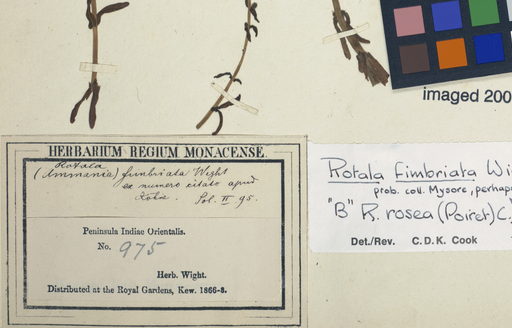 imaged 200
HERBARIUM REGIUM MONACENSE.
Rotala
(Ammania) fimbriata Wight
ex numero citato apud
Sol. II 95.
Peninsula Indiae Orientalis.
No. 975
Herb. Wight.
Distributed at the Royal Gardens, Kew. 1866-8.
Rotala fimbriata Wi
prob. coll. Mysore, perhaps
"B" R. rosea (Poiret) C.
Det./Rev. C. D. K. Cook